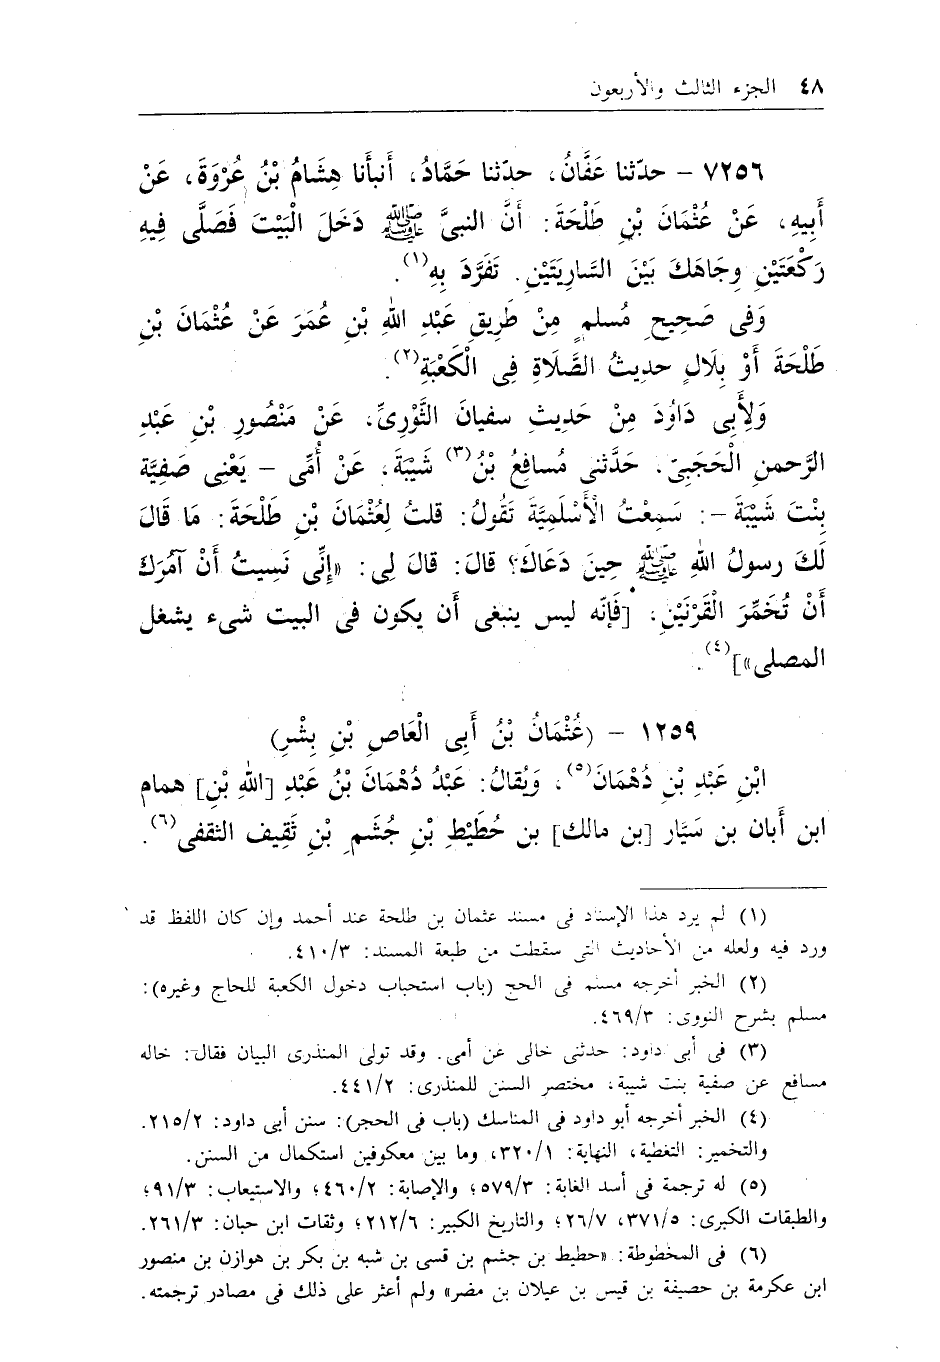 ٤٨ الجزء الثالث والأربعون
٧٢٥٦ – حدّثنا عَفَّانُ، حدّثنا حَمَّادُ، أنبأنا هِشَامُ بْنُ عُرْوَةَ، عَنْ
أَبِيهِ، عَنْ عُثْمَانَ بْنِ طَلْحَةَ: أَنَّ النبىَّ ﷺ دَخَلَ الْبَيْتَ فَصَلَّى فِيهِ
رَكْعَتَيْنِ وِجَاهَكَ بَيْنَ السَّارِيَتَيْنِ. تَفَرَّدَ بِهِ(١).
وَفى صَحِيحِ مُسلمٍ مِنْ طَرِيقِ عَبْدِ اللهِ بْنِ عُمَرَ عَنْ عُثْمَانَ بْنِ
طَلْحَةَ أَوْ بِلَالٍ حديثُ الصَّلَاةِ فِى الْكَعْبَةِ(٢).
وَلِأَبِى دَاوُدَ مِنْ حَديثِ سفيانَ الثَّوْرِىِّ، عَنْ مَنْصُورِ بْنِ عَبْدِ
الرَّحمنِ الْحَجَبِىّ، حَدَّثنى مُسافِعُ بْنُ(٣) شَيْبَةَ، عَنْ أُمِّى – يَعْنِى صَفِيَّةَ
بِنْتَ شَيْبَةَ –: سَمِعْتُ الْأَسْلَمِيَّةَ تَقُولُ: قلتُ لِعُثْمَانَ بْنِ طَلْحَةَ: مَا قَالَ
لَكَ رسولُ اللهِ ﷺ حِينَ دَعَاكَ؟ قالَ: قالَ لِى: «إِنِّى نَسِيتُ أَنْ آمُرَكَ
أَنْ تُخَمِّرَ الْقَرْنَيْنِ، [فَإِنّه ليس ينبغى أن يكون فى البيت شىء يشغل
المصلى»](٤).
١٢٥٩ – (عُثْمَانُ بْنُ أَبِى الْعَاصِ بْنِ بِشْرِ)
ابْنِ عَبْدِ بْنِ دُهْمَانَ(٥)، وَيُقالُ: عَبْدُ دُهْمَانَ بْنُ عَبْدِ [اللهِ بْنِ] همام
ابن أَبان بن سَيَّار [بن مالك] بن حُطَيْطِ بْنِ جُشَم بْنِ ثَقِيف الثقفى(٦).
(١) لم يرد هذا الإسناد فى مسند عثمان بن طلحة عند أحمد وإن كان اللفظ قد
ورد فيه ولعله من الأحاديث التى سقطت من طبعة المسند: ٤١٠/٣.
(٢) الخبر أخرجه مسلم فى الحج (باب استحباب دخول الكعبة للحاج وغيره):
مسلم بشرح النووى: ٤٦٩/٣.
(٣) فى أبى داود: حدثنى خالى عن أمى. وقد تولى المنذرى البيان فقال: خاله
مسافع عن صفية بنت شيبة، مختصر السنن للمنذرى: ٤٤١/٢.
(٤) الخبر أخرجه أبو داود فى المناسك (باب فى الحجر): سنن أبى داود: ٢١٥/٢.
والتخمير: التغطية، النهاية: ٣٢٠/١، وما بين معكوفين استكمال من السنن.
(٥) له ترجمة فى أسد الغابة: ٥٧٩/٣؛ والإصابة: ٤٦٠/٢؛ والاستيعاب: ٩١/٣؛
والطبقات الكبرى: ٣٧١/٥، ٢٦/٧؛ والتاريخ الكبير: ٢١٢/٦؛ وثقات ابن حبان: ٢٦١/٣.
(٦) فى المخطوطة: «حطيط بن جشم بن قسى بن شبه بن بكر بن هوازن بن منصور
ابن عكرمة بن حصيفة بن قيس بن عيلان بن مضر» ولم أعثر على ذلك فى مصادر ترجمته.